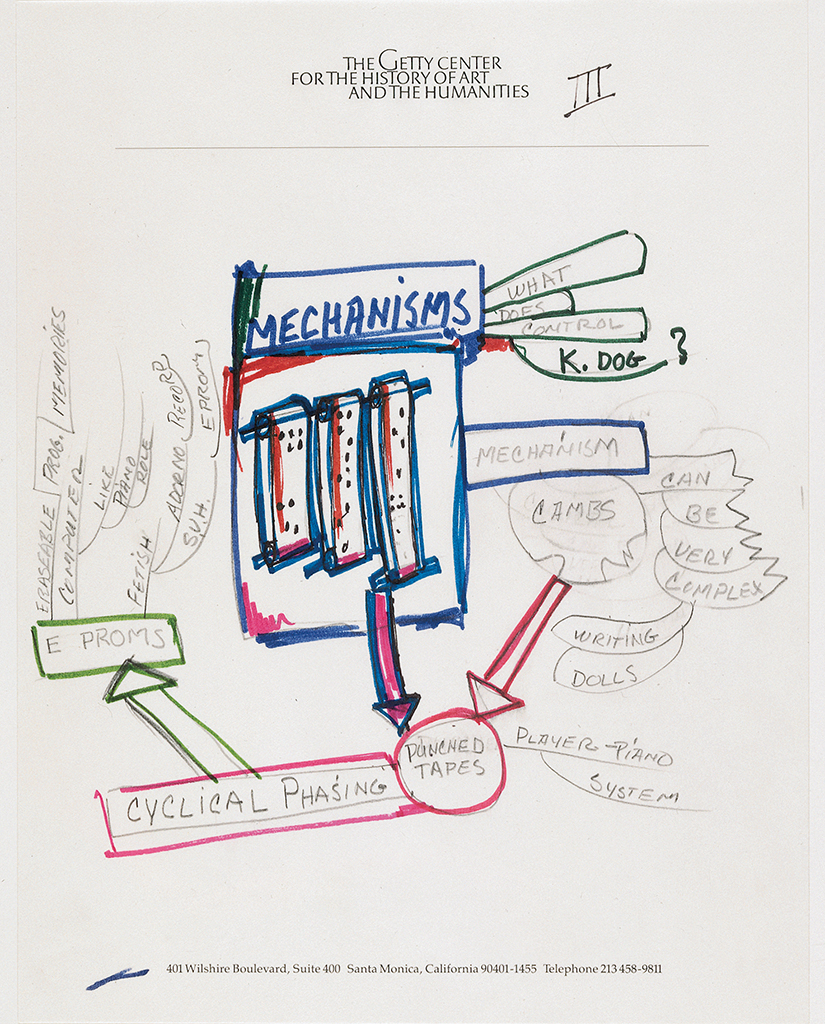 THE GETTY CENTER
FOR THE HISTORY OF ART
AND THE HUMANITIES
III
MECHANISMS
WHAT
DOES
CONTROL
K. DOG ?
MECHANISM
CAN
CAN
BE
VERY
COMPLEX
CAMBS
WRITING
DOLLS
ERASEABLE PROG. MEMORIES
COMPUTER
LIKE
PIANO
ROLE
FETISH
ADORNO RECORD
S.V.H.
EPROM
E PROMS
PUNCHED
TAPES
PLAYER-PIANO
SYSTEM
CYCLICAL PHASING
401 Wilshire Boulevard, Suite 400 Santa Monica, California 90401-1455 Telephone 213 458-9811